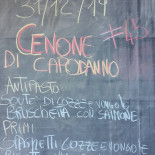 31/12/19
CENONE €45
DI CAPODANNO
ANTIPASTO
SOUTE DI COZZE E VONGOLE
BRUSCHETTA CON SALMONE
PRIMI
SPAGHETTI COZZE E VONGOLE